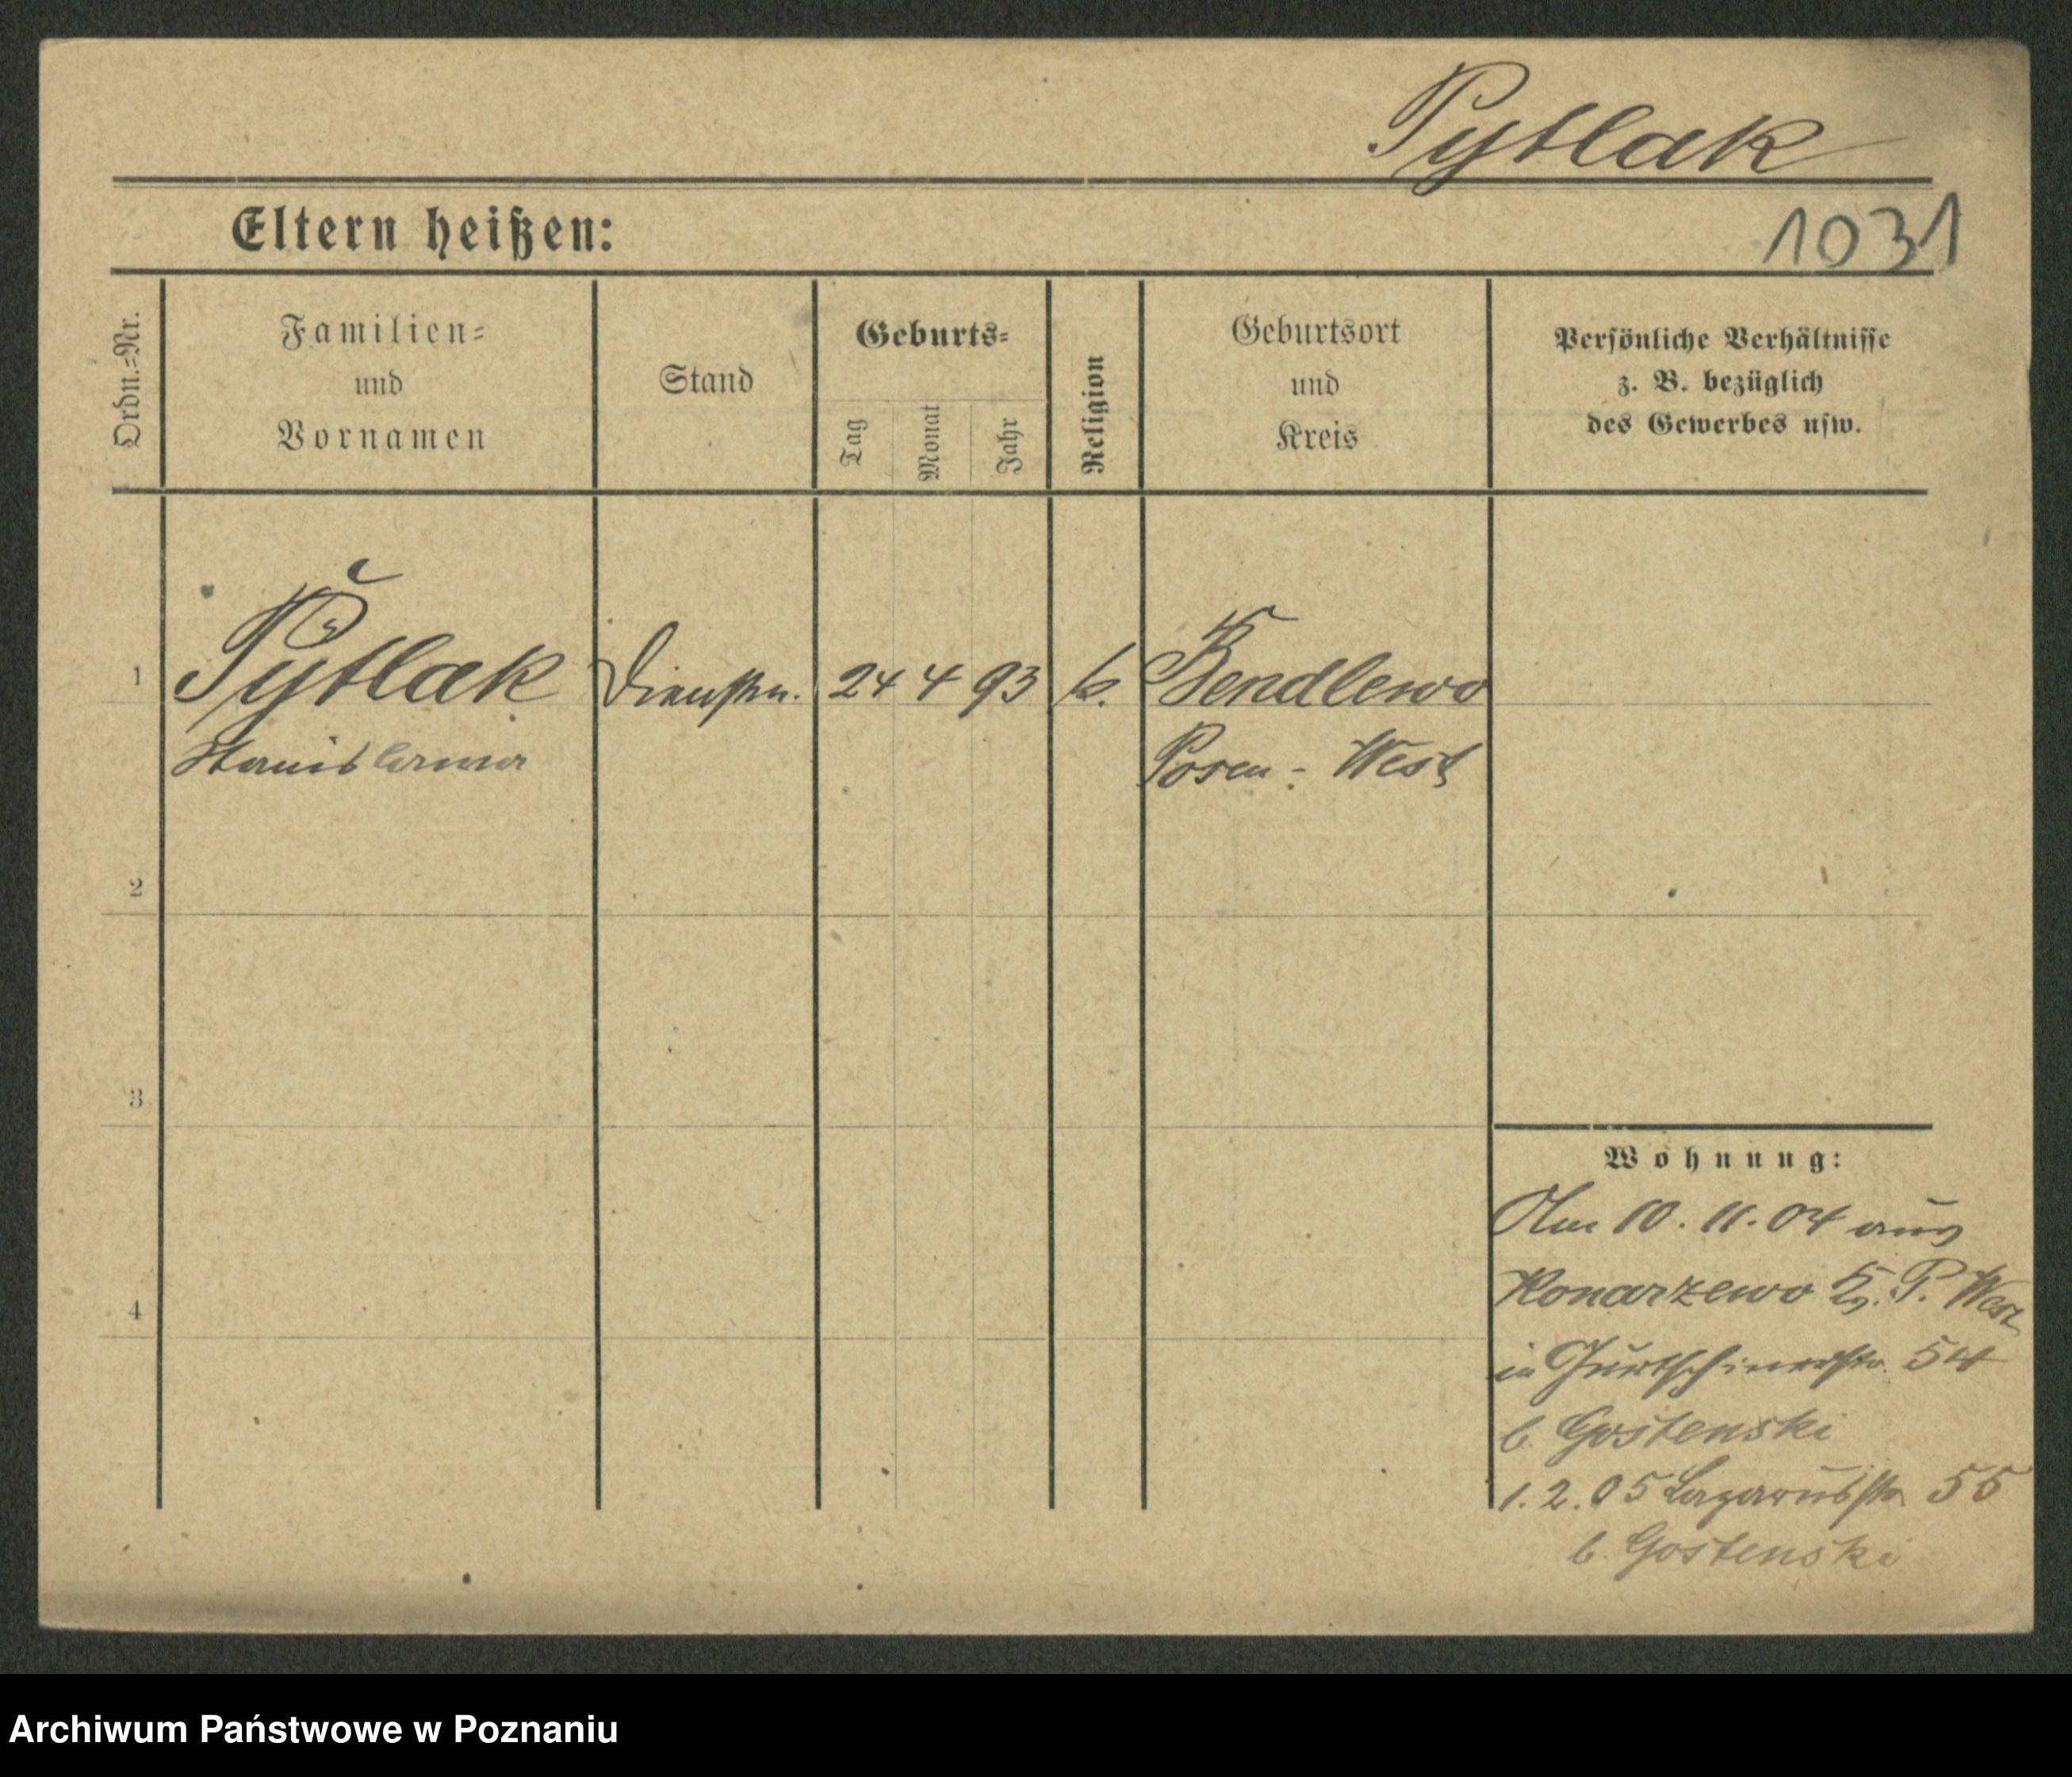 Pytlak
Eltern heißen:
1031
Ordn.=Nr.
Familien=
und
Vornamen
Stand
Geburts=
Tag
Monat
Jahr
Religion
Geburtsort
und
Kreis
Persönliche Verhältnisse
z. B. bezüglich
des Gewerbes usw.
1
Pytlak
Stanislawa
24 4 93
k.
Bendlewo
Posen - West
2
3
4
Wohnung:
Am 10. 11. 04 aus
Konarzewo Kr. P. West
in Gurtschinerstr. 54
b. Gostenski
1. 2. 05 Lazarusstr. 55
b. Gostenski
Archiwum Państwowe w Poznaniu